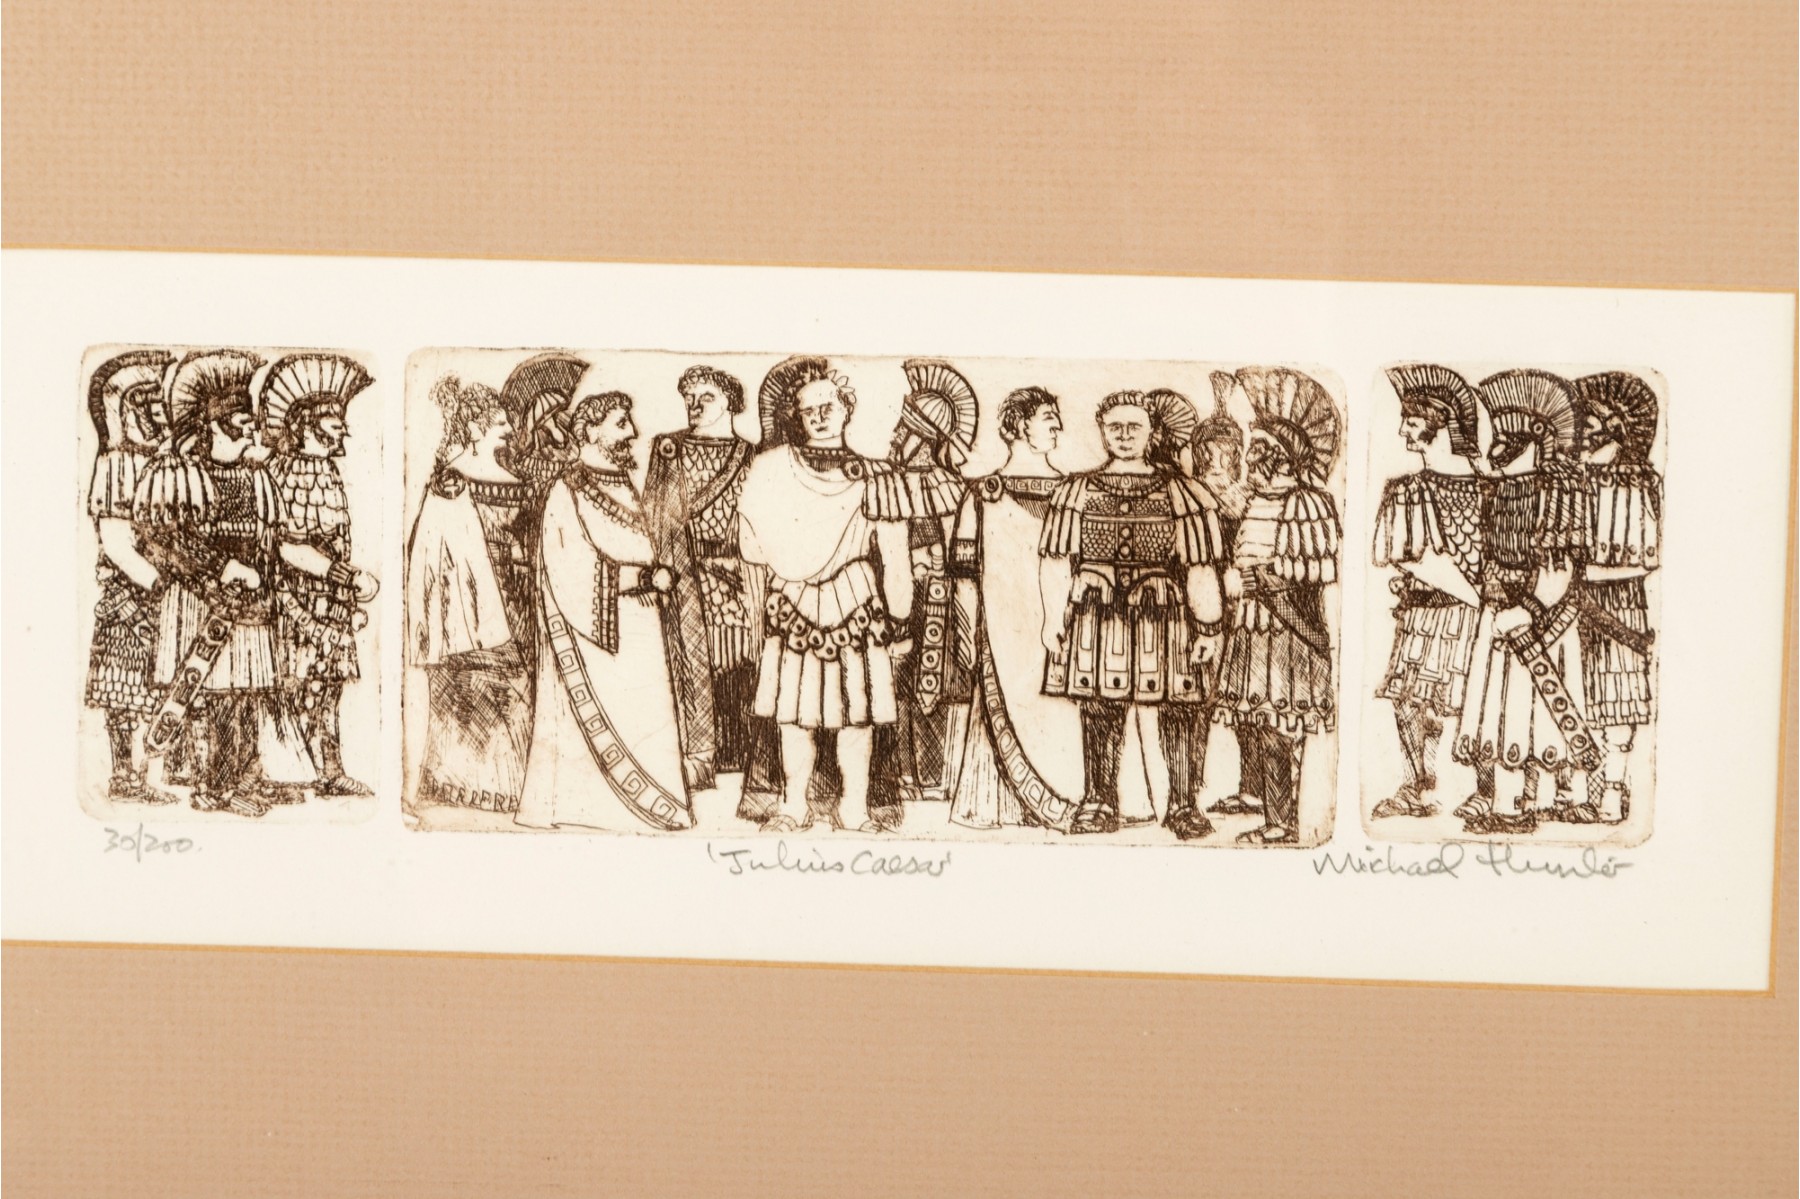 30/200.
'Julius Caesar'
Michael